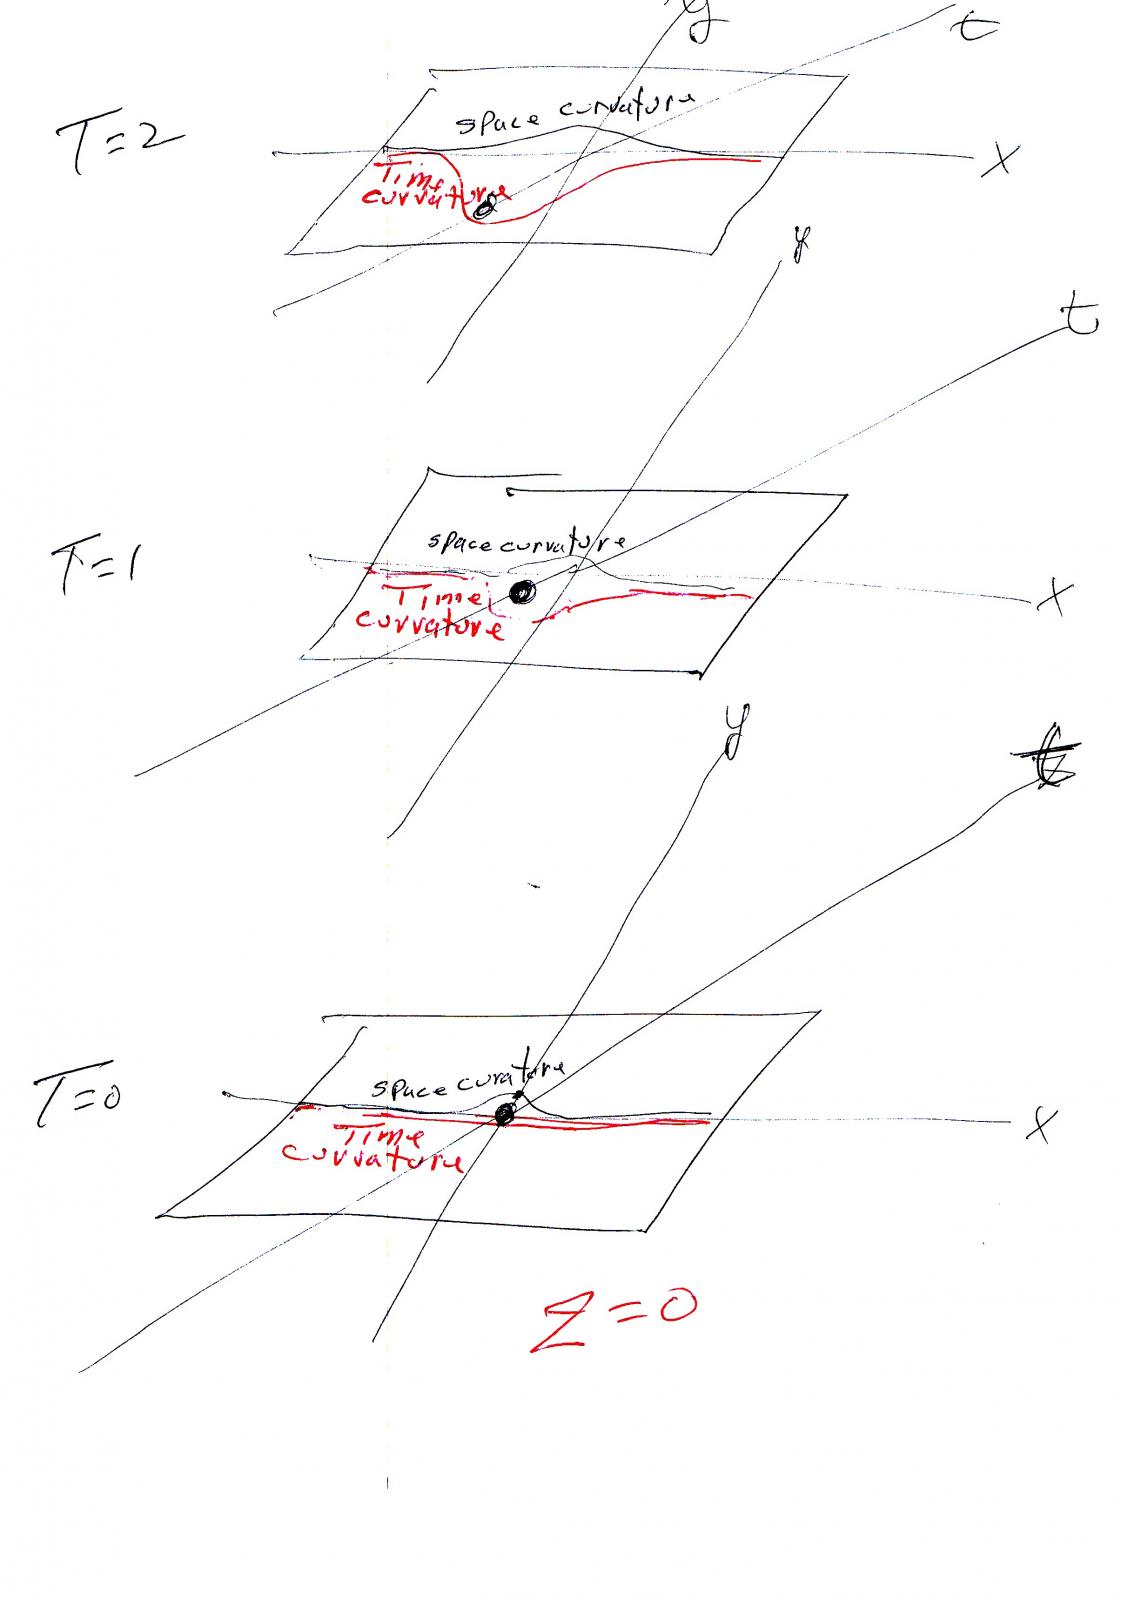 y
t
T=2
space curvature
x
Time
curvature
y
t
T=1
space curvature
x
Time
curvature
y
t
T=0
space curature
x
Time
curvature
z=0